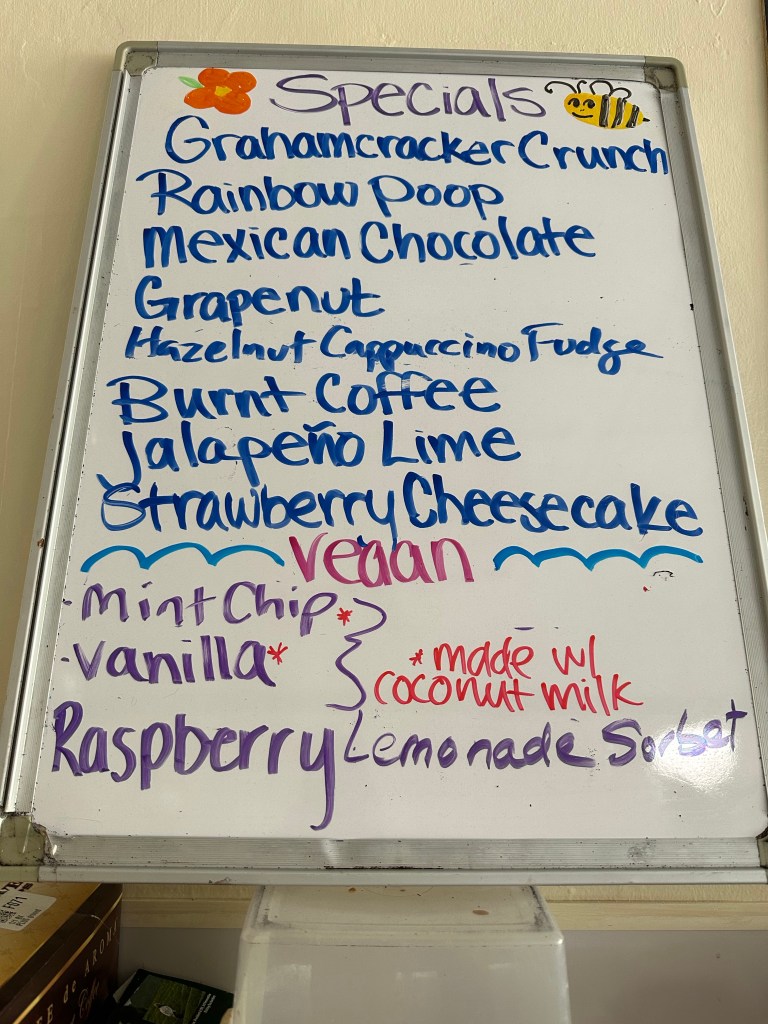 Specials
Grahamcracker Crunch
Rainbow Poop
Mexican Chocolate
Grapenut
Hazelnut Cappuccino Fudge
Burnt Coffee
Jalapeño Lime
Strawberry Cheesecake
Vegan
Mint Chip*
Vanilla*
*made w/
coconut milk
Raspberry Lemonade Sorbet
de AROMA